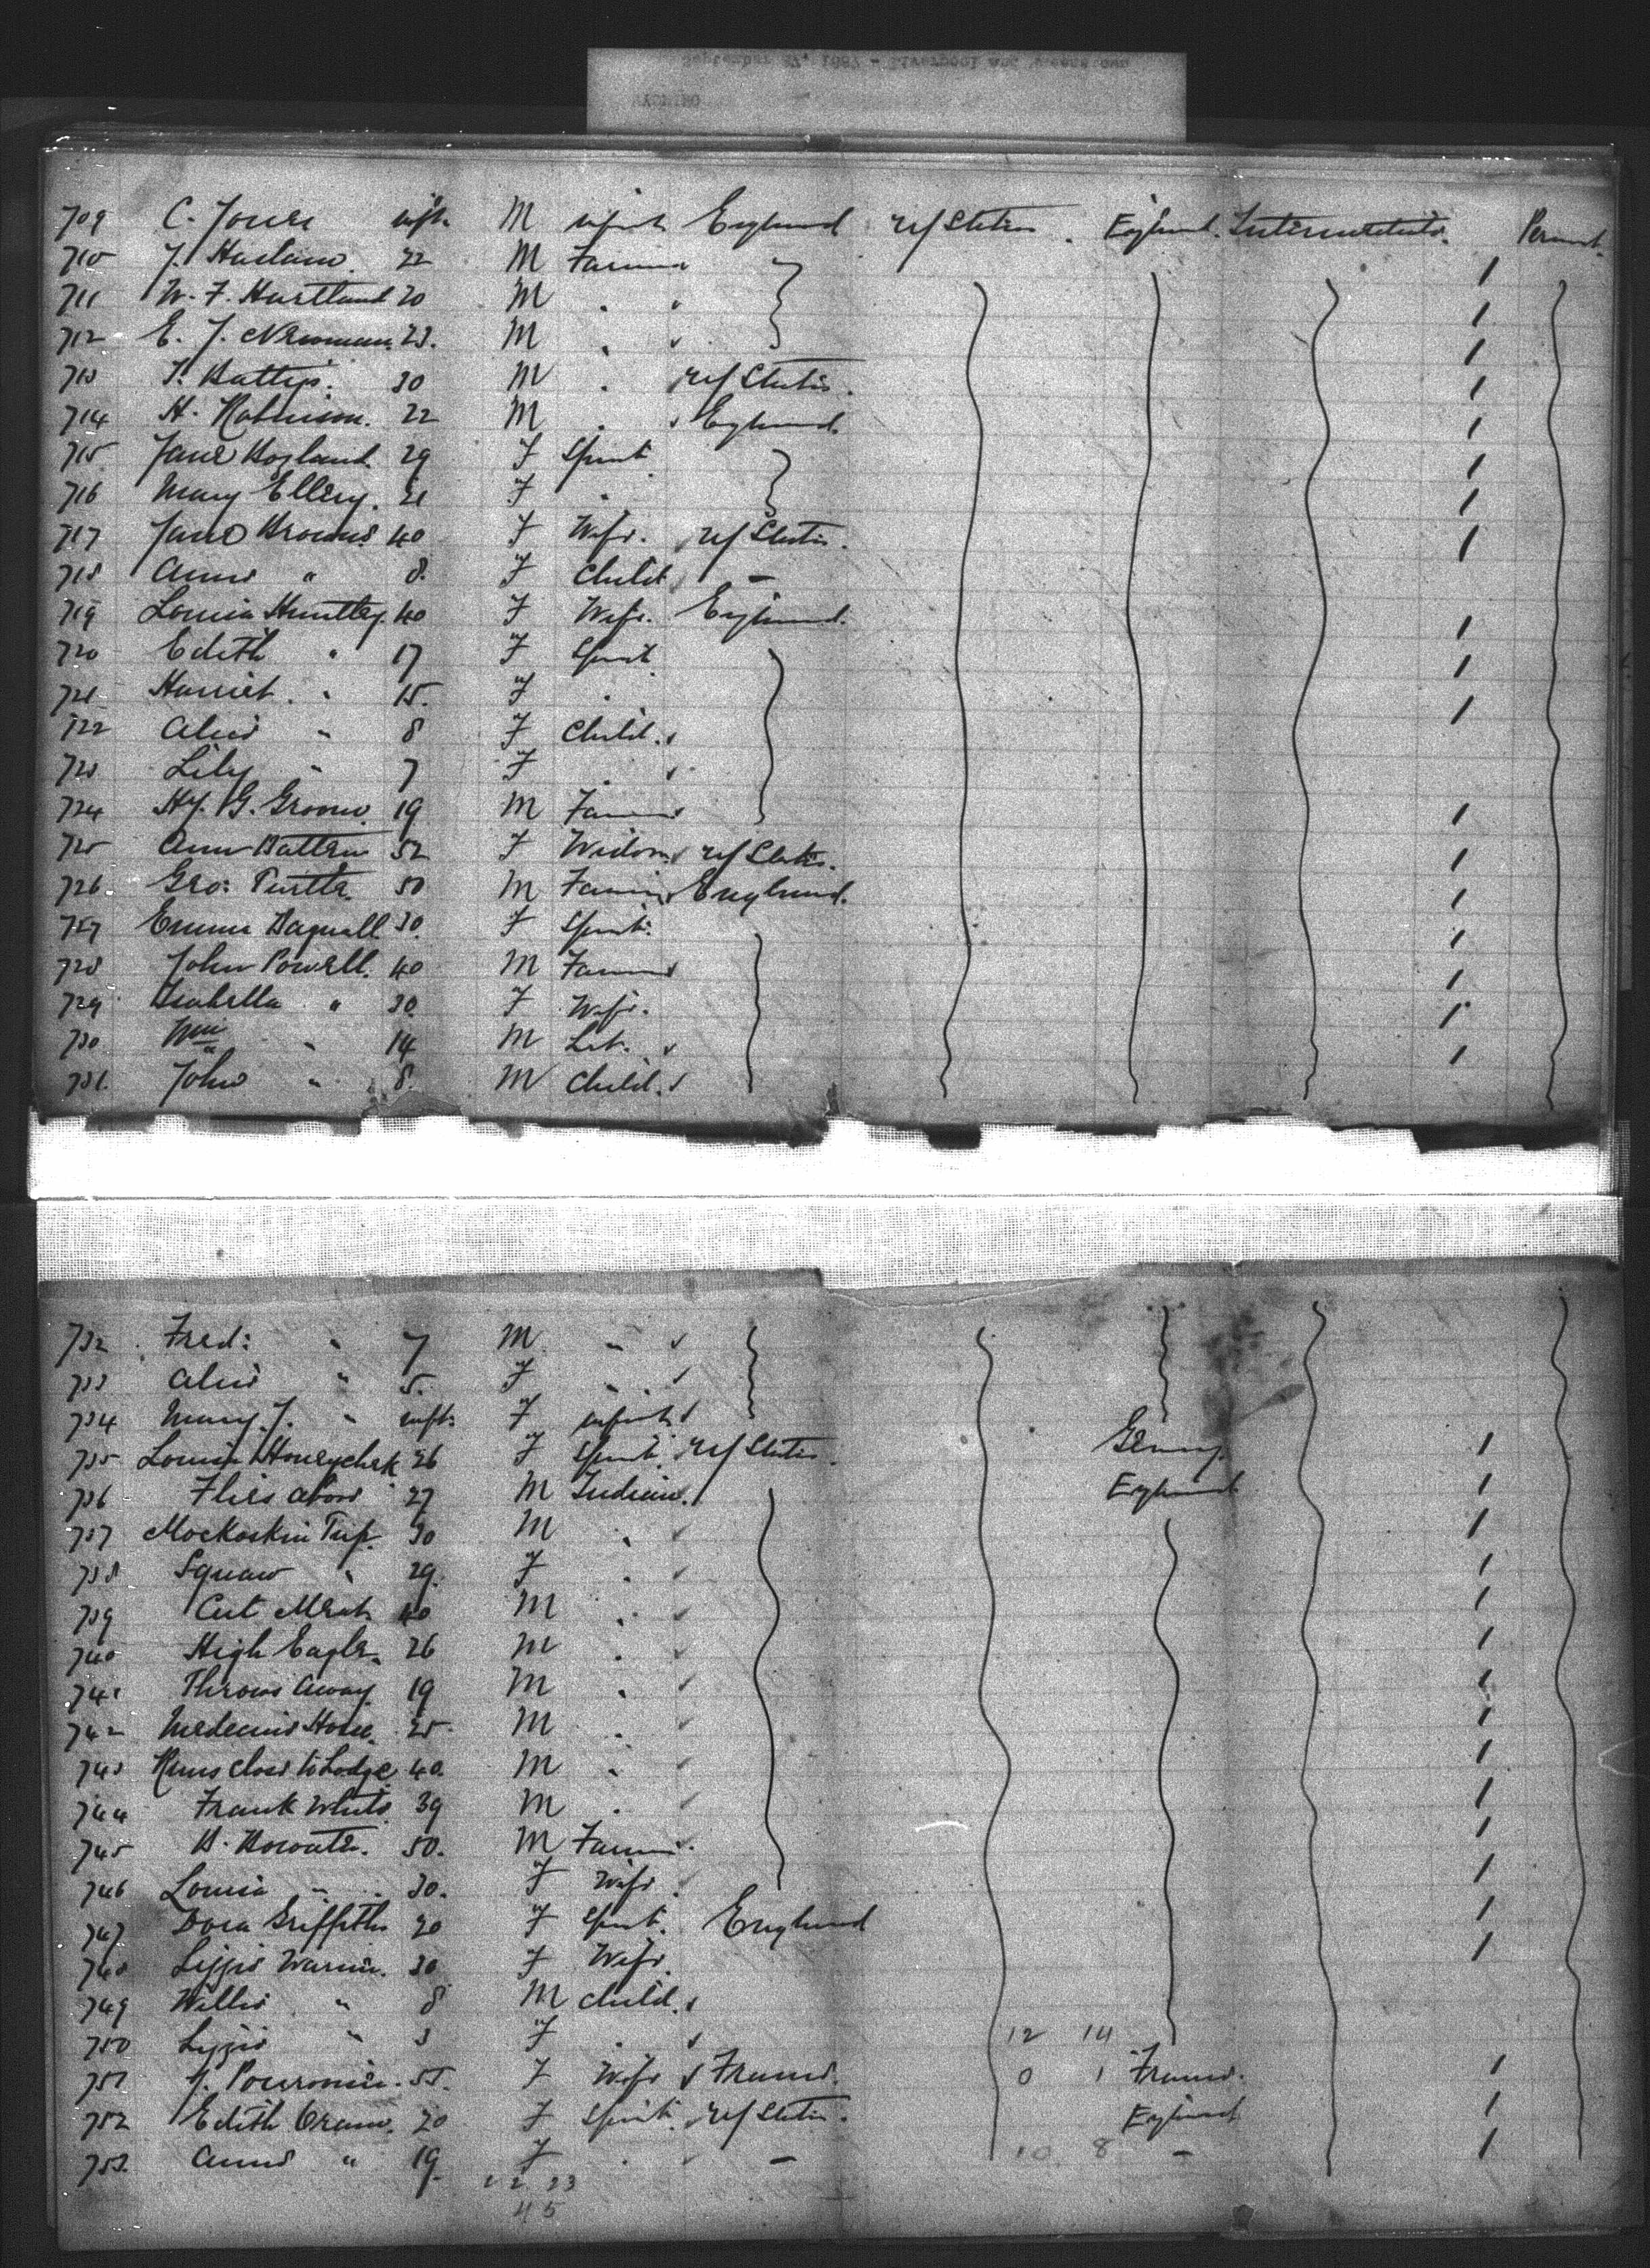 September 27, 1887 - Liverpool and Queenstown
WYOMING
709 C. Jones inft. M infant England U/States. England. Intermediate. Permt.
710 J. Haslam. 22 M Farmer /
711 W. F. Hartland 20 M " " /
712 E. J. Newman. 23. M " " /
713 T. Battys. 30 M " U/States. /
714 H. Robinson. 22 M " " England. /
715 Jane Bozland. 29 F Spinst. /
716 Mary Ellery. 21 F " /
717 Jane Browne. 40 F Wife. U/States. /
718 Annie " 8. F Child -
719 Louisa Huntley. 40 F Wife. England. /
720 Edith " 17 F Spinst /
721 Harriet. " 15. F " /
722 Alice " 8 F Child. "
723 Lily " 7 F " "
724 Hy. G. Groom. 19 M Farmer /
725 Ann Batten 52 F Widow U/States. /
726 Geo: Purtle. 50 M Farmer England. /
727 Emma Bagnall 30. F Spinst. /
728 John Powell. 40 M Farmer /
729 Isabella " 30. F Wife. /
730 Wm " 14 M Lab. " /
731. John " 8. M Child. "
732 Fred: " 7 M " "
733 Alice " 5. F " "
734 Mary J. " inft. F infant "
735 Louisa 26 F Spinst. U/States. Germy. /
736 Flies above 27 M Indian. England /
737 Mockaskin Top. 30 M " /
738 Squaw " 29. F " /
739 Cut Meat. 40 M " /
740 High Eagle. 26 M " /
741 Throws Away. 19 M " /
742 Medecine Horse. 25. M " /
743 Runs close to Lodge 40. M " /
744 Frank White 39 M " /
745 B. Bowater. 50. M Farmer. /
746 Louisa " 30. F Wife. /
747 Dora Griffiths 20 F Spinst. England /
748 Lizzie 30 F Wife. /
749 Willie " 8 M child. "
750 Lizzie " 3 F " " 12 14
751 J. 55. F Wife " France. 0 1 France. /
752 Edith 20 F Spinst. U/States. England /
753. Annie " 19 F " - 10 8 - /
22 23
45